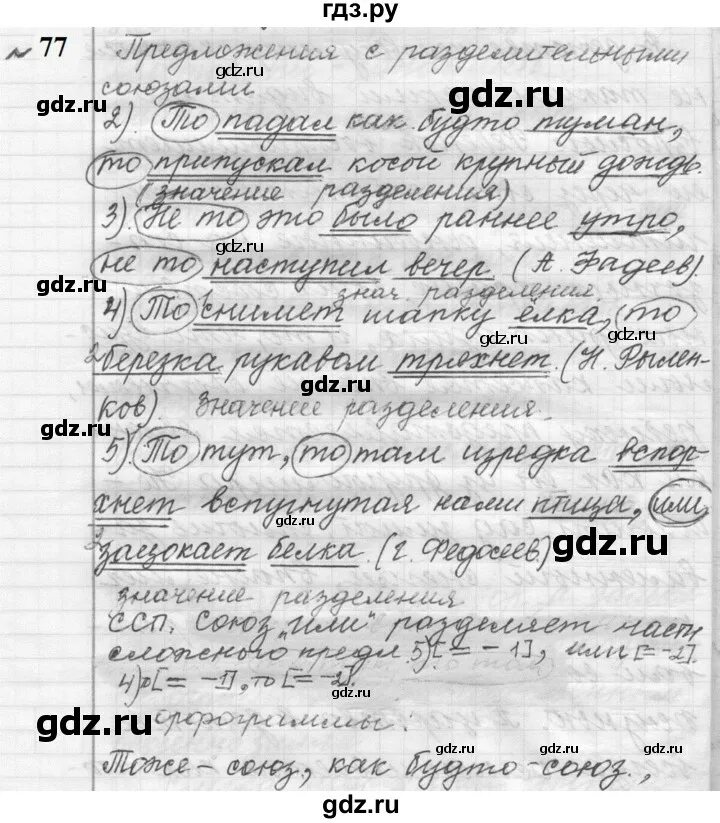 гдз.ру
№ 77 Предложения с разделительными
gdz.ru gdz.ru
союзами
gdz.ru
2). То падал как будто туман,
то припускал косой крупный дождь.
(значение разделения)
gdz.ru
3). Не то это было раннее утро,
не то наступил вечер. (А. Фадеев).
gdz.ru
знач. разделения
4) То снимет шапку ёлка, то
gdz.ru
березка рукавом тряхнет. (Н. Рылен-
gdz.ru
ков). Значение разделения.
gdz.ru gdz.ru
5). То тут, то там изредка вспор-
хнет вспугнутая нами птица, или
gdz.ru
зацокает белка. (Г. Федосеев)
gdz.ru
значение разделения
gdz.ru
ССП. Союз "или" разделяет части
сложного предл. 5) [= - 1], или [= -2].
gdz.ru
4) [= -1], то [= -2].
орфограммы:
gdz.ru gdz.ru
Тоже - союз, как будто - союз.,
gdz.ru